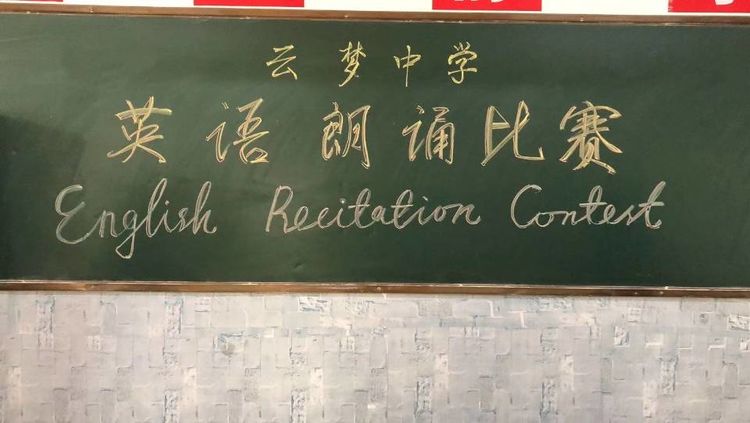 云梦中学
英语朗诵比赛
English Recitation Contest